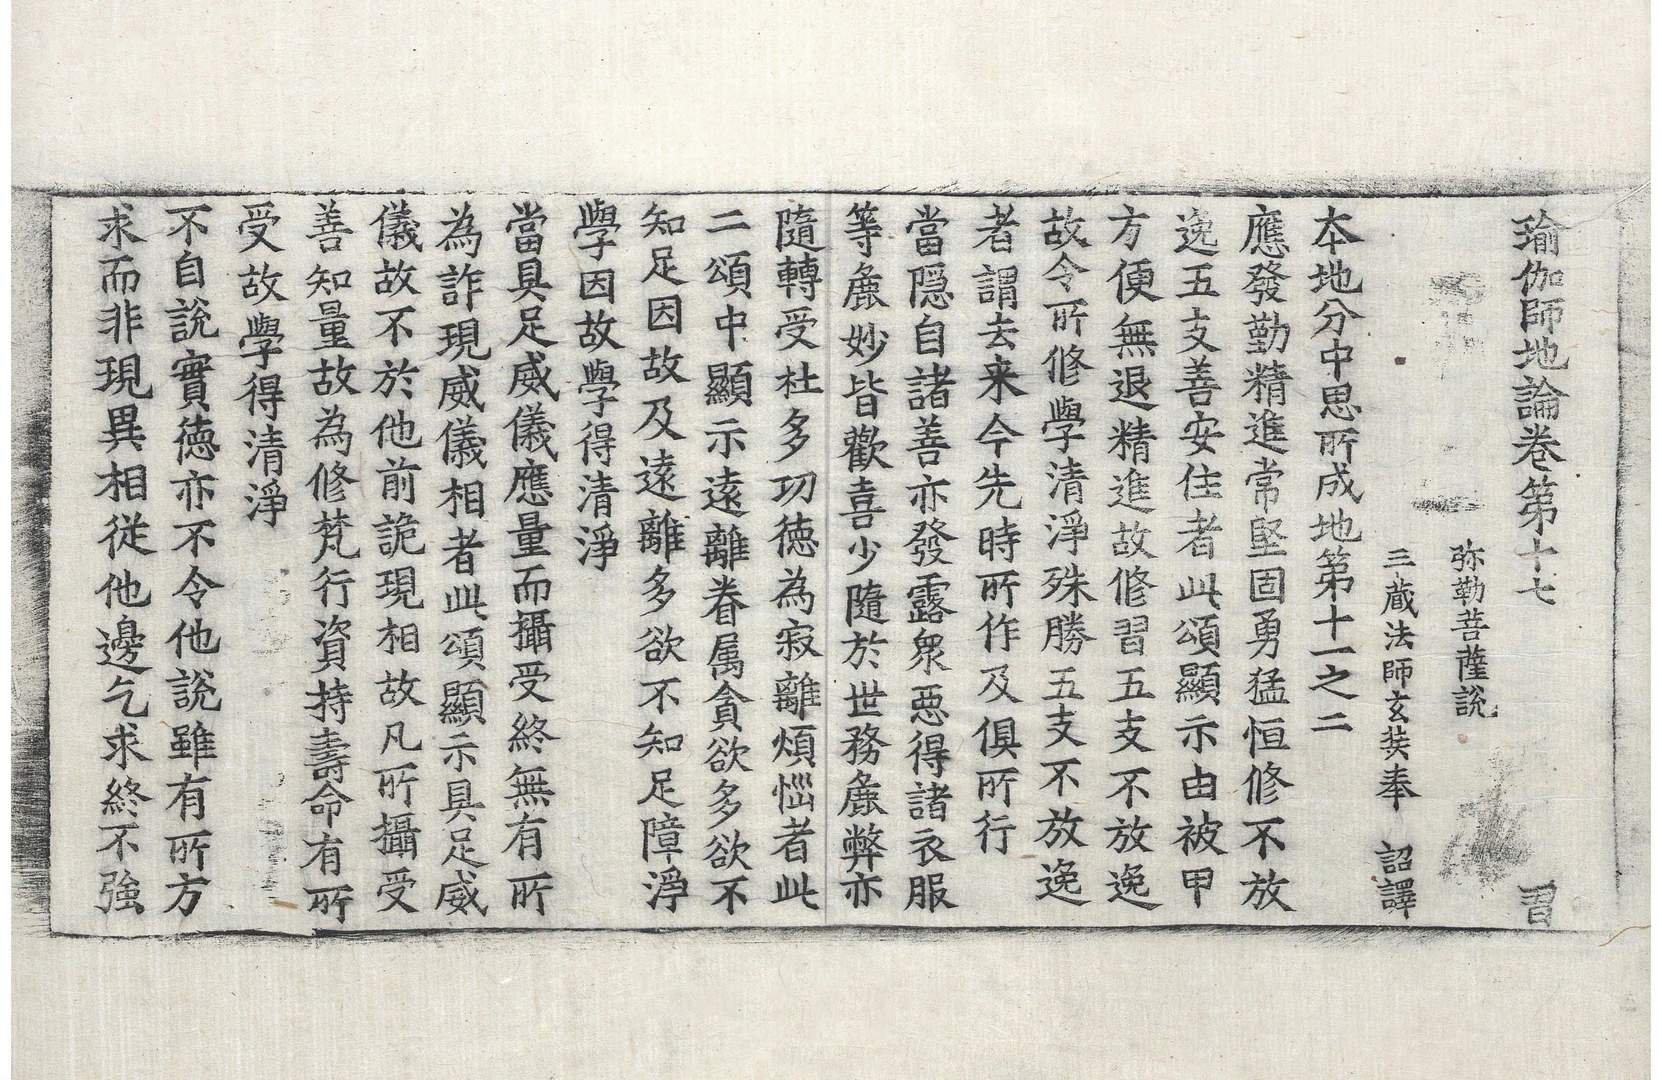 瑜伽師地論卷第十七 習
弥勒菩薩說
三蔵法師玄奘奉 詔譯
本地分中思所成地第十一之二
應發勤精進常堅固勇猛恒修不放
逸五支善安住者此頌顯示由被甲
方便無退精進故修習五支不放逸
故令所修學清淨殊勝五支不放逸
者謂去来今先時所作及俱所行
當隠自諸善亦發露衆惡得諸衣服
等麁妙皆歡喜少隨於世務麁弊亦
隨轉受杜多功徳為寂離煩惱者此
二頌中顯示遠離眷属貪欲多欲不
知足因故及遠離多欲不知足障淨
學因故學得清淨
當具足威儀應量而攝受終無有所
為詐現威儀相者此頌顯示具足威
儀故不於他前詭現相故凡所攝受
善知量故為修梵行資持壽命有所
受故學得清淨
不自說實徳亦不令他說雖有所方
求而非現異相從他邊乞求終不強